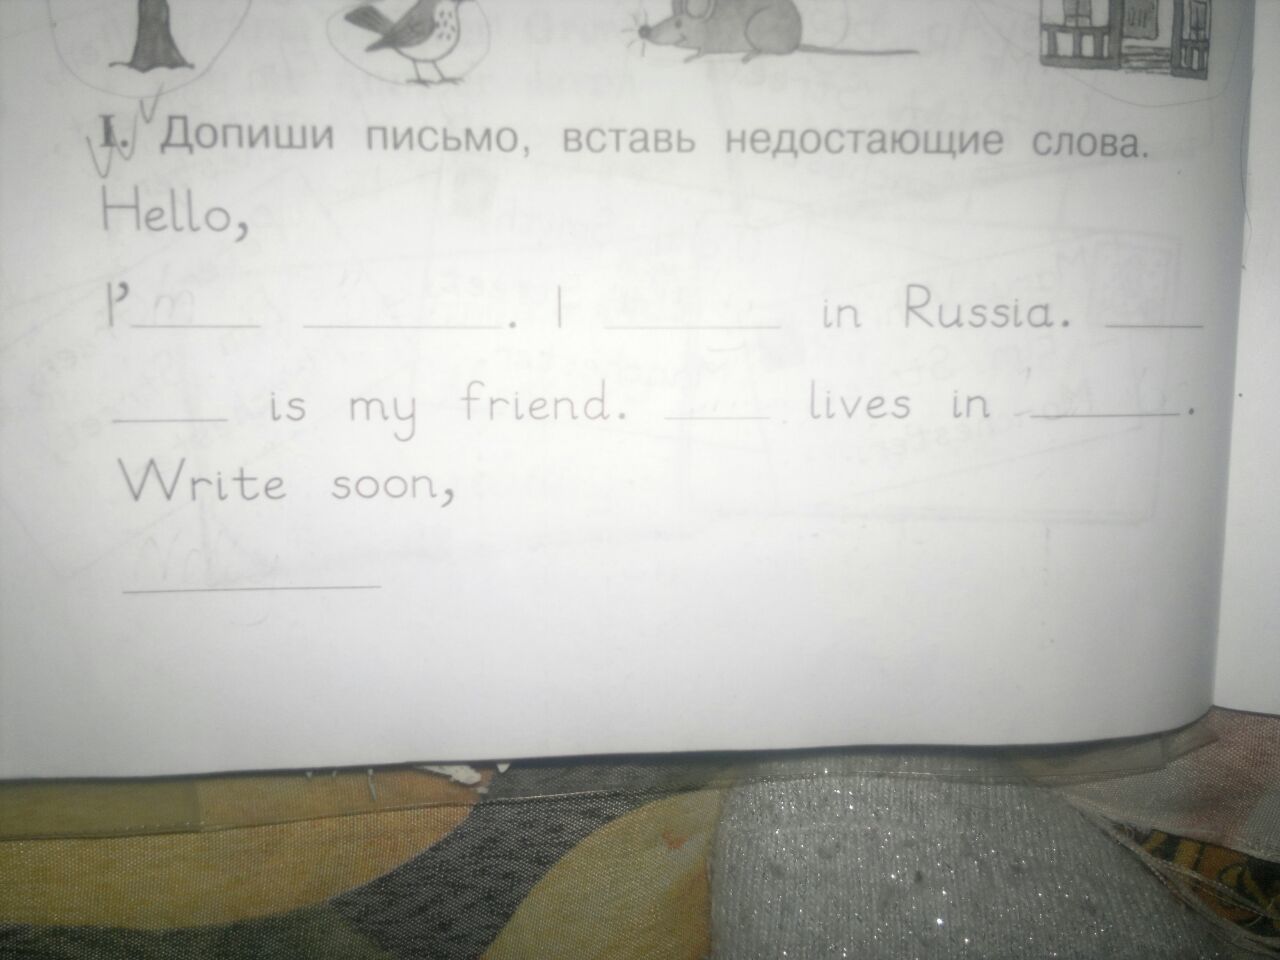 I. Допиши письмо, вставь недостающие слова.
Hello,
I'm ______ __________. I _________ in Russia. _____
______ is my friend. _____ lives in ________.
Write soon,
_____________